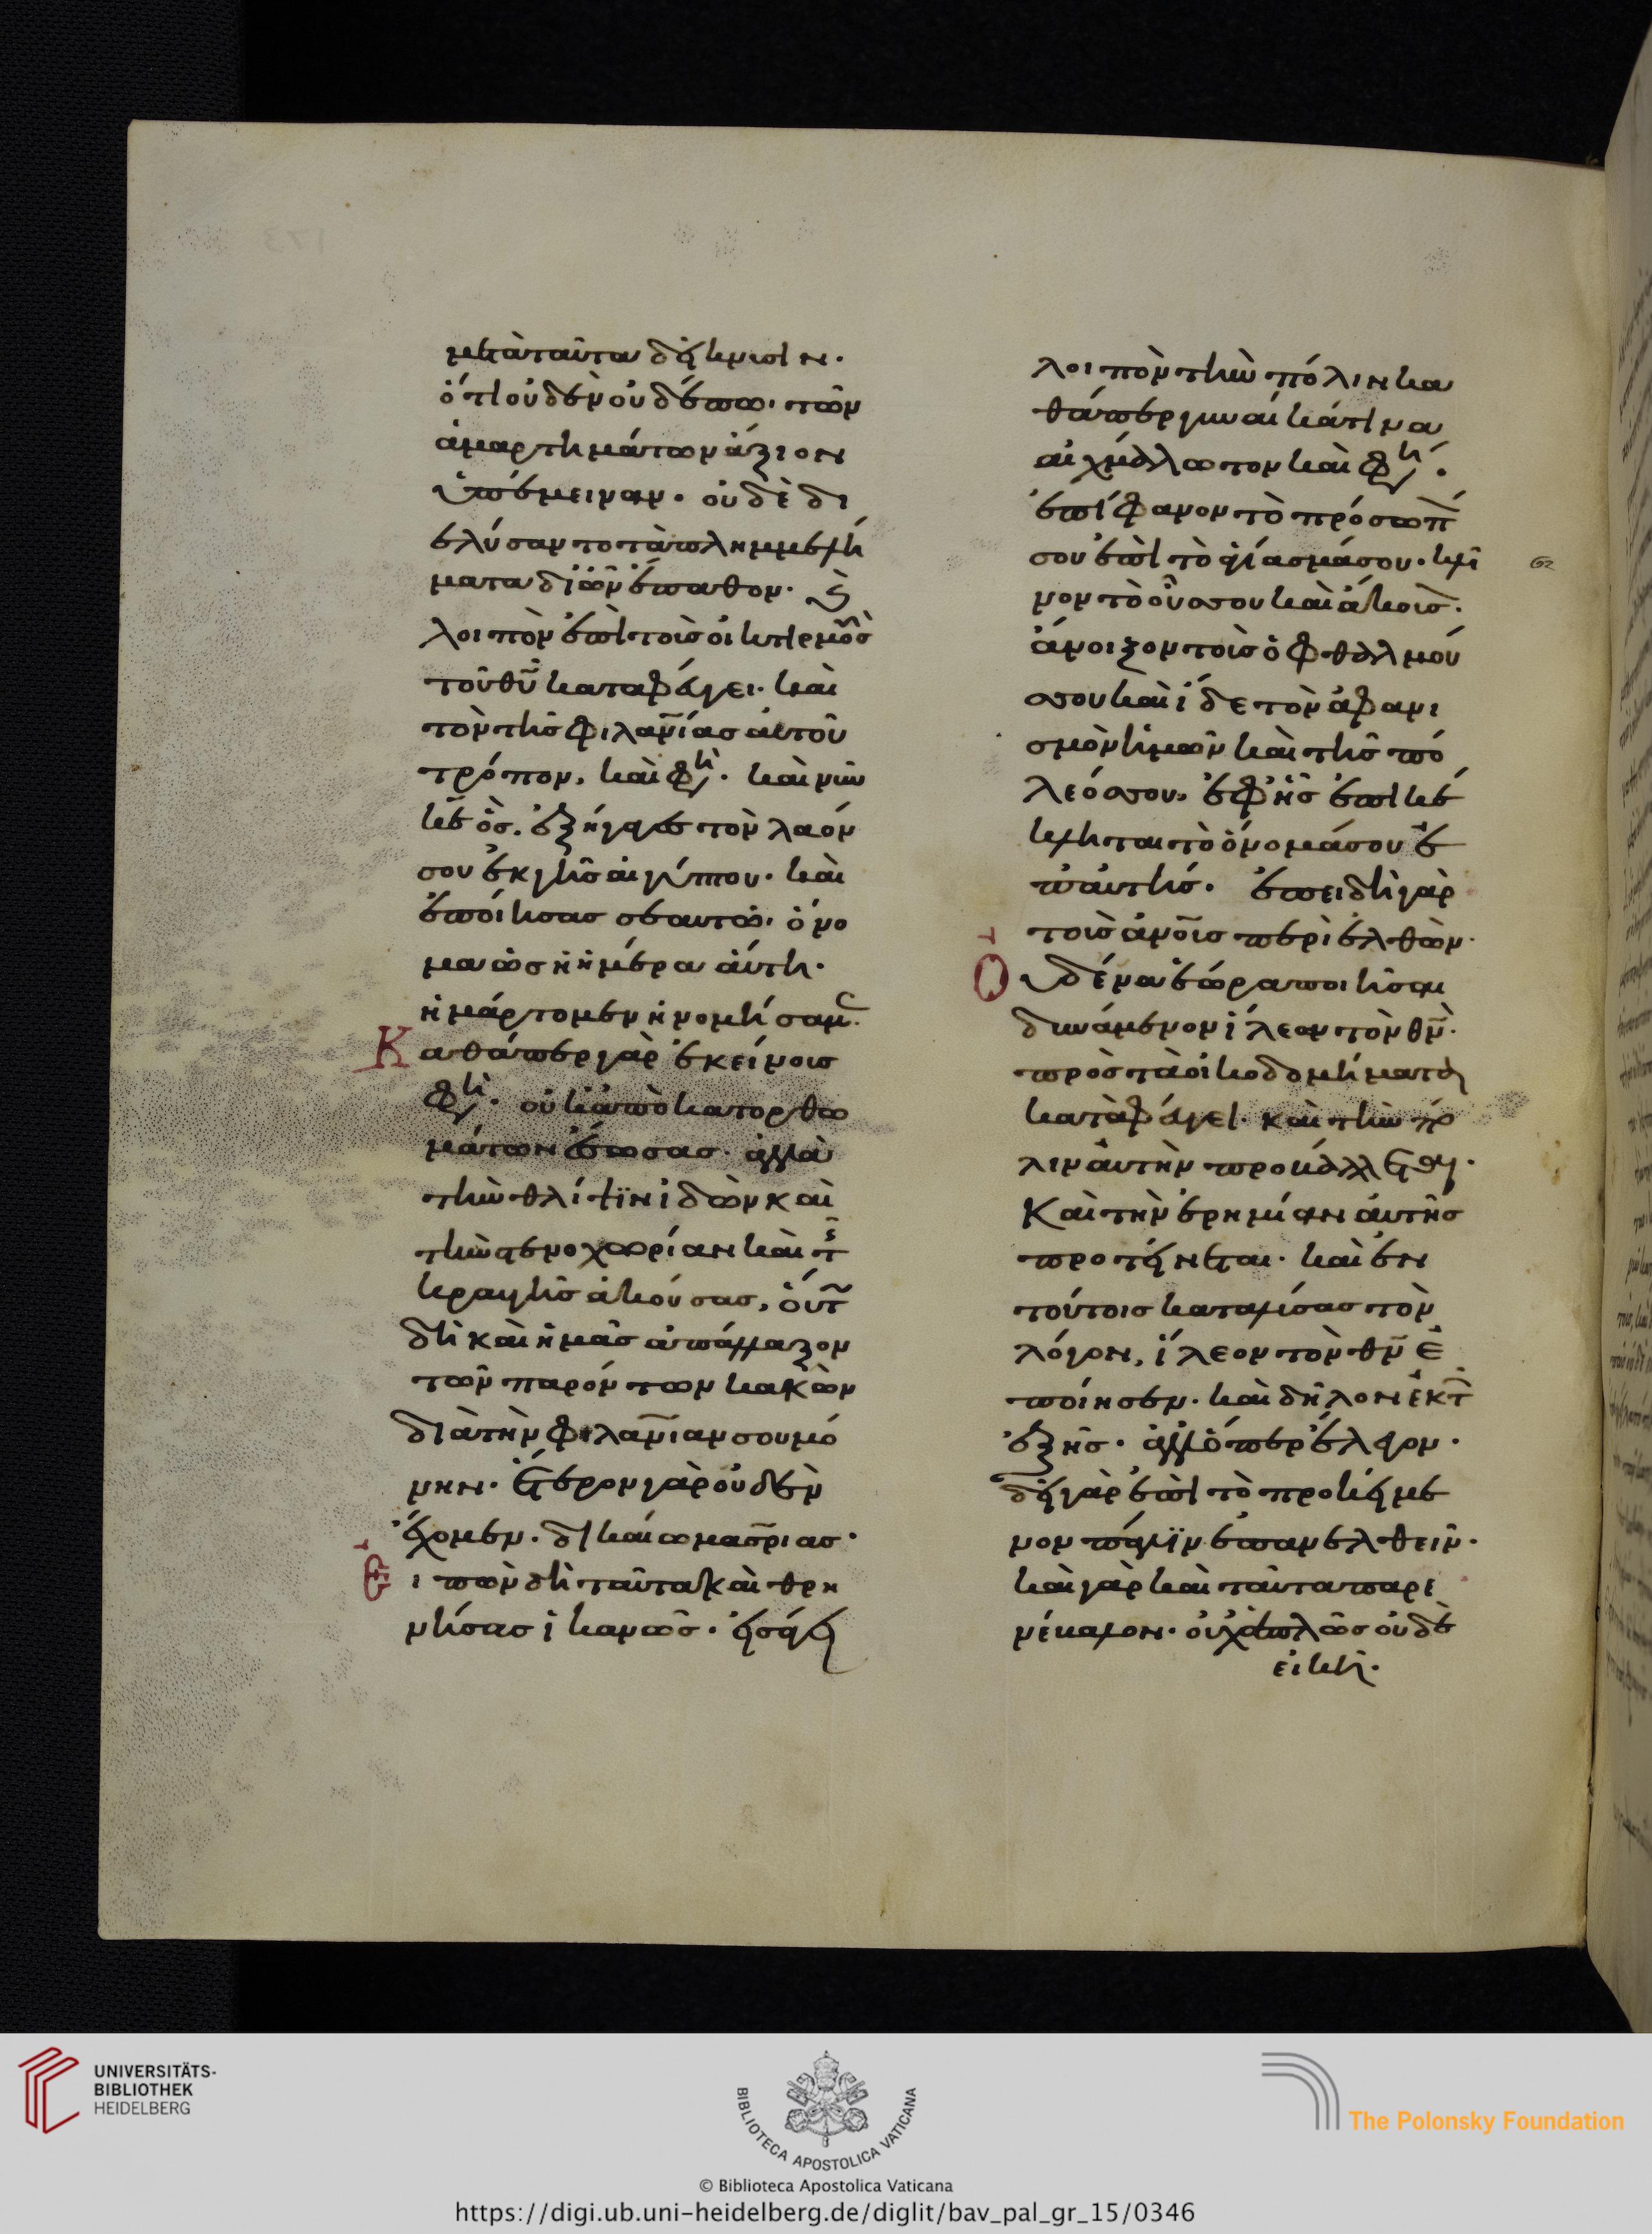 μετὰ ταῦτα δείκνυσιν.
ὅτι οὐδὲν οὐδέπω. τῶν
ἁμαρτημάτων ἄξιον
ὑπέμειναν. οὐδὲ δι
ελύσαντο τὰ πλημμελή
ματα δι ὧν ἔπαθον. ϗ
λοιπὸν ἐπὶ τοὺς οἰκτιρμοὺς
τοῦ θῡ καταφεύγει. καὶ
τὸν τῆς φιλανίας αὐτοῦ
τρόπον. καὶ φη. καὶ νῦν
κε ὁ θς. ἐξήγαγες τὸν λαόν
σου ἐκ γῆς αἰγύπτου. καὶ
ἐποίησας σεαυτῷ. ὄνο
μα ὡς ἡ ἡμέρα αὕτη.
ἡμάρτομεν ἠνομήσαμ.
Καθάπερ γὰρ ἐκείνους
φη. οὐκ ἀπὸ κατορθω
μάτων ἔσωσας. ἀλλὰ
τὴν θλίψιν ἰδὼν καὶ
τὴν στενοχωρίαν καὶ τ
κραυγῆς ἀκούσας, οὕτ
δὴ καὶ ἡμᾶς ἀπάλλαξον
τῶν παρόντων κακῶν
διὰ τὴν φιλανίαν σου μό
νην. ἕτερον γὰρ οὐδὲν
ἔχομεν. δικαίωμα σριας.
Εἰπὼν δὴ ταῦτα καὶ θρη
νήσας ἱκανῶς. εἰσάγει
λοιπὸν τὴν πόλιν κα
θάπερ γυναῖκά τινα
αἰχμάλωτον καὶ φη.
ἐπίφανον τὸ πρόσωπ
σου ἐπὶ τὸ ἁγίασμά σου. κλῖ
νον τὸ οὖς σου καὶ ἄκουσ.
ἄνοιξον τοὺς ὀφθαλμού
ς σου καὶ ἴδε τὸν ἀφανι
σμὸν ἡμῶν καὶ τῆς πό
λεώς σου. ἐφ ἧς ἐπικέ
κληται τὸ ὄνομά σου ἐ
π αὐτῆς. ἐπειδὴ γὰρ
τοὺς ἀνους περιελθὼν.
Οὐδένα ἑώρα ποιῆσαι
δυνάμενον ἵλεων τὸν θν.
πρὸς τὰ οἰκοδομήματα
καταφεύγει. καὶ τὴν πό
λιν αὐτὴν προβάλλεται.
Καὶ τὴν ἐρημίαν αὐτῆς
προτείνεται. καὶ ἐν
τούτοις καταλύσας τὸν
λόγον, ἵλεων τὸν θν ἐ
ποίησεν. καὶ δῆλον ἐκ τ
ἑξῆς. ἀλλ ὅπερ ἔλεγον.
δεῖ γὰρ ἐπὶ τὸ προκείμε
νον πάλιν ἐπανελθεῖν.
καὶ γὰρ καὶ ταῦτα παρε
νέβαλον. οὐχ ἁπλῶς οὐδὲ
εἰκῆ.
UNIVERSITÄTS-
BIBLIOTHEK
HEIDELBERG
BIBLIOTECA APOSTOLICA VATICANA
The Polonsky Foundation
© Biblioteca Apostolica Vaticana
https://digi.ub.uni-heidelberg.de/diglit/bav_pal_gr_15/0346